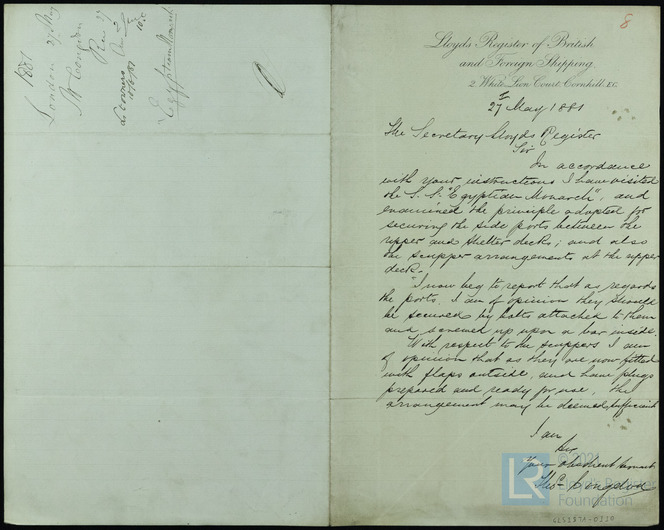 1881
London 27 May
Mr Congdon
Rec 27
"Egyptian Monarch"
8
Lloyds Register of British
and Foreign Shipping
2 White Lion Court, Cornhill, E.C.
27th May 1881
The Secretary Lloyds Register
Sir
In accordance
with your instructions I have visited
the S.S. "Egyptian Monarch", and
examined the principle adopted for
securing the side ports between the
upper and shelter decks; and also
the scupper arrangements at the upper
deck.
I now beg to report that as regards
the ports, I am of opinion they should
be secured by bolts attached to them
and screwed up upon a bar inside.
With respect to the scuppers I am
of opinion that as they are now fitted
with flaps outside, and have plugs
prepared and ready for use, the
arrangement may be deemed sufficient
I am
Sir
Your obedient Servant
Thos. Congdon
LR
© 2021
Lloyd's Register
Foundation